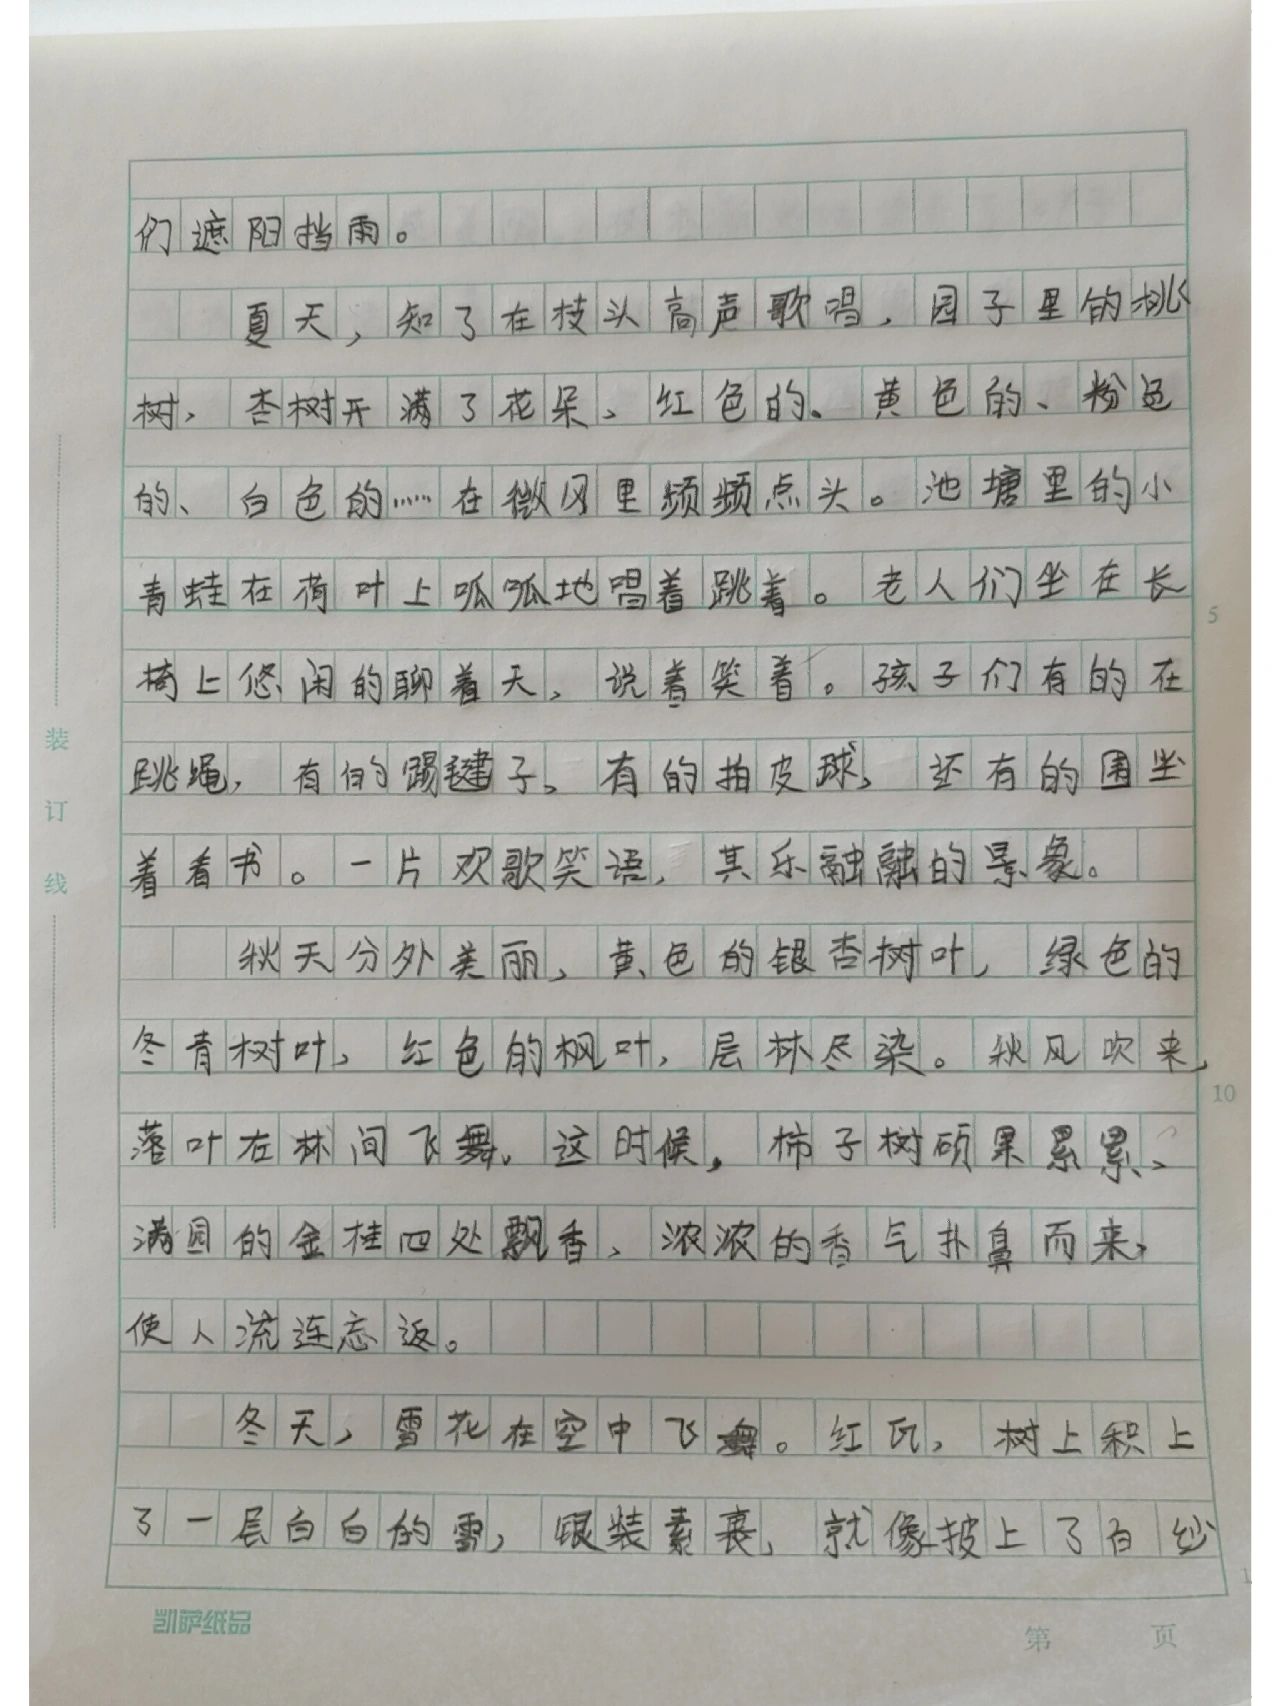 们遮阳挡雨。
夏天，知了在枝头高声歌唱，园子里的桃
树，杏树开满了花朵、红色的、黄色的、粉色
的、白色的……在微风里频频点头。池塘里的小
青蛙在荷叶上呱呱地唱着跳着。老人们坐在长
椅上悠闲的聊着天，说着笑着。孩子们有的在
跳绳，有的踢毽子、有的拍皮球，还有的围坐
着看书。一片欢歌笑语，其乐融融的景象。
秋天分外美丽，黄色的银杏树叶，绿色的
冬青树叶，红色的枫叶，层林尽染。秋风吹来，
落叶在林间飞舞。这时候，柿子树硕果累累、
满园的金桂四处飘香、浓浓的香气扑鼻而来，
使人流连忘返。
冬天，雪花在空中飞舞。红瓦，树上积上
了一层白白的雪，银装素裹，就像披上了白纱
装订线
5
10
1
凯萨纸品
第 页